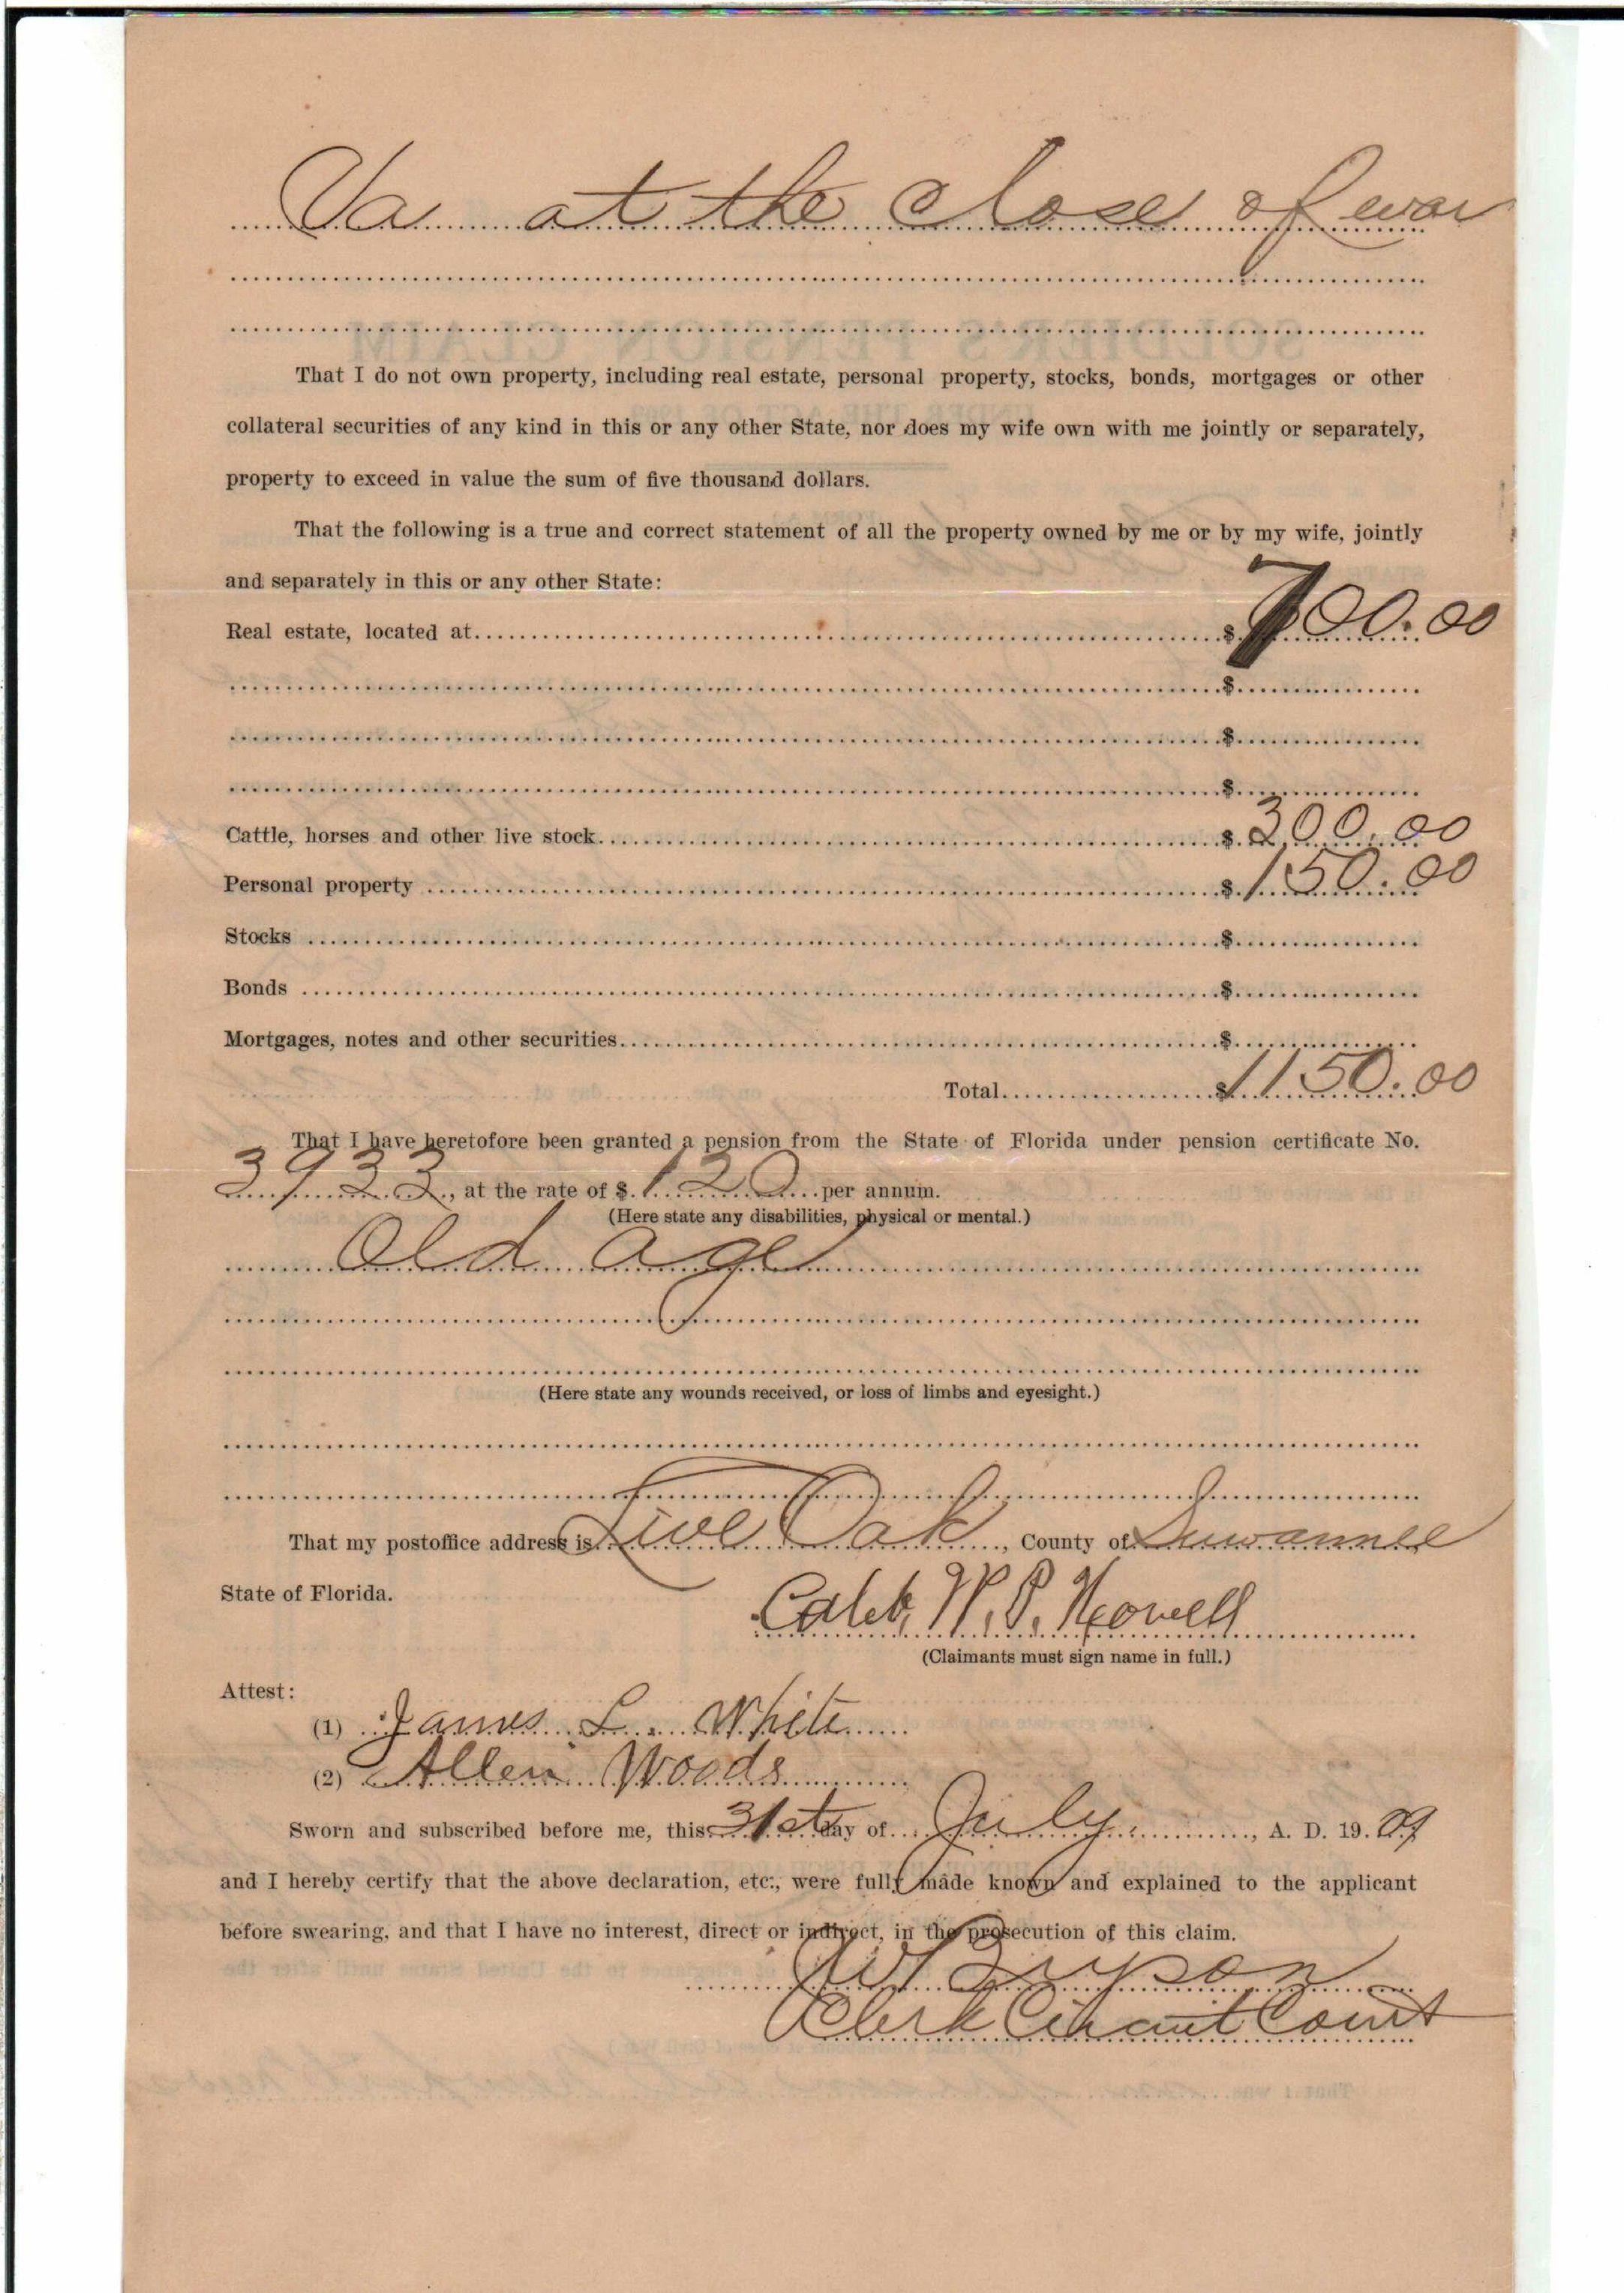 Va at the close of war
That I do not own property, including real estate, personal property, stocks, bonds, mortgages or other
collateral securities of any kind in this or any other State, nor does my wife own with me jointly or separately,
property to exceed in value the sum of five thousand dollars.
That the following is a true and correct statement of all the property owned by me or by my wife, jointly
and separately in this or any other State:
Real estate, located at $ 700.00
$
$
$
Cattle, horses and other live stock $ 300.00
Personal property $ 150.00
Stocks $
Bonds $
Mortgages, notes and other securities $
Total $ 1150.00
That I have heretofore been granted a pension from the State of Florida under pension certificate No.
3933, at the rate of $ 120 per annum.
(Here state any disabilities, physical or mental.)
Old age
(Here state any wounds received, or loss of limbs and eyesight.)
That my postoffice address is Live Oak, County of Suwannee
State of Florida.
Caleb. W. P. Howell
(Claimants must sign name in full.)
Attest:
(1) James L. White
(2) Allen Woods
Sworn and subscribed before me, this 31st day of July, A. D. 19 09
and I hereby certify that the above declaration, etc., were fully made known and explained to the applicant
before swearing, and that I have no interest, direct or indirect, in the prosecution of this claim.
Clerk Circuit Court